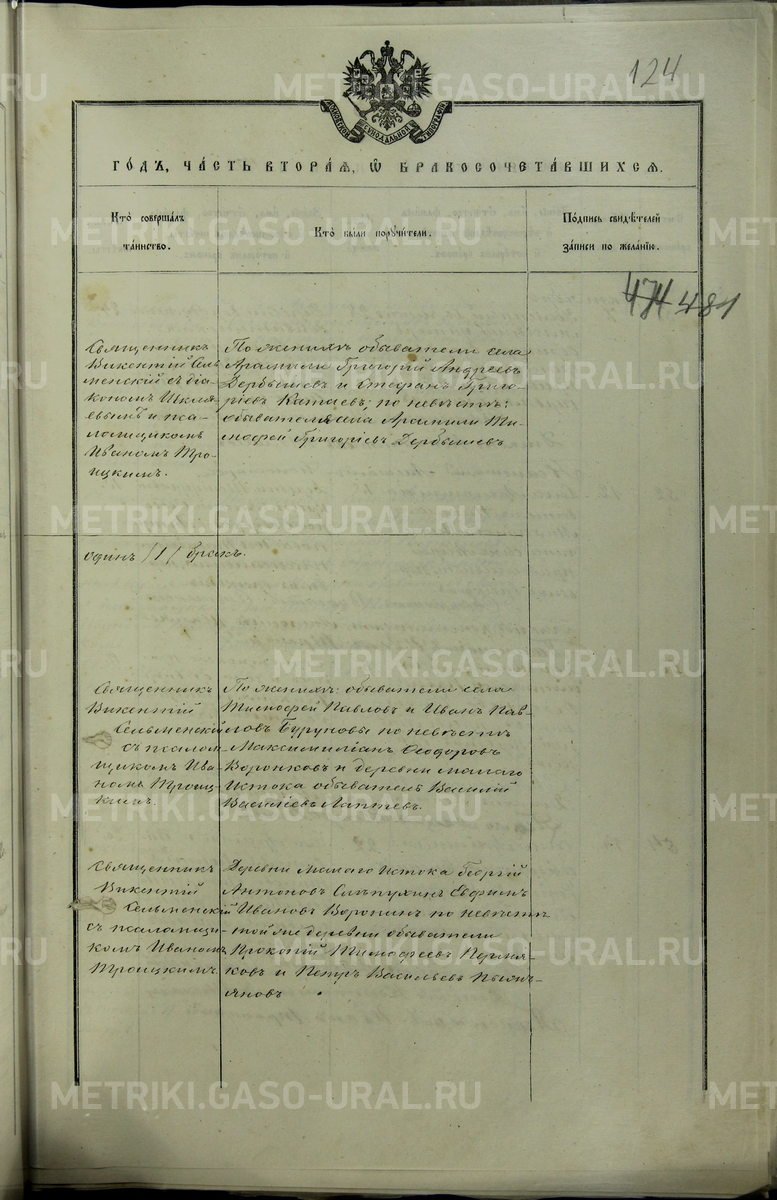 124
МОСКОВСКОЙ СѴНОДАЛЬНОЙ ТИПОГРАФІИ
ГО́ДЪ, ЧА́СТЬ ВТОРА́Ѧ, Ѡ҆ БРАКОСОЧЕТА́ВШИХСѦ.
Кто̀ соверша́лъ
та́инство.
Кто̀ бы́ли порꙋчи́тели.
По́дпись свидѣ́телей
за́писи по жела́нїю.
474 481
Священникъ
Викентій Сель
менскій съ діа
кономъ Шкля
евымъ и пса-
ломщикомъ
Иваномъ Тро-
ицкимъ.
По женихѣ обыватели села
Арамили Григорій Андреевъ
Дербышевъ и Стефанъ Григо-
ріевъ Катаевъ; по невѣстѣ:
обыватель села Арамили Ти-
мофей Григоріевъ Дербышевъ
одинъ /1/ бракъ.
Священникъ
Викентій
Сельменскій
съ псалом-
щикомъ Ива-
номъ Троиц-
кимъ.
По женихѣ: обыватели села
Тимофей Павловъ и Иванъ Пав-
ловъ Буруновы по невѣстѣ
Максимиліанъ Феодоровъ
Воронковъ и деревни Малаго
Истока обыватель Василій
Васильевъ Лаптевъ.
Священникъ
Викентій
Сельменскій
съ псаломщи-
комъ Иваномъ
Троицкимъ
Деревни Малаго Истока Георгій
Антоновъ Слѣпухинъ Евфимъ
Ивановъ Воронинъ по невѣстѣ
той же деревни обыватели
Прокопій Тимофеевъ Пермя-
ковъ и Петръ Васильевъ Пьян-
яновъ
METRIKI.GASO-URAL.RU